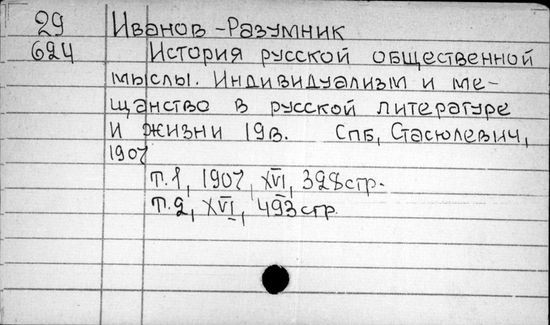 29 Иванов-Разумник
624 История русской общественной
мыслы. Индивидуализм и ме-
щанство в русской литературе
и жизни 19в. Спб, Стасюлевич,
1907
т.1, 1907, XVI, 328стр.
т.2, XVI, 493стр.